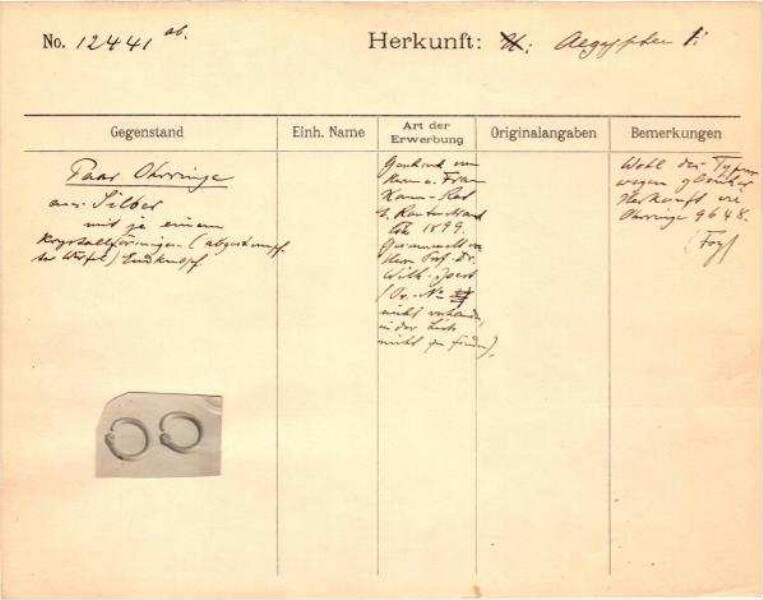 No. 12441 ab.
Herkunft: Aegypten
Gegenstand
Einh. Name
Art der
Erwerbung
Originalangaben
Bemerkungen
Paar Ohrringe
aus Silber
mit je einem
krystallförmigen (abgestumpf-
ter Würfel) Endknopf.
Geschenk von
Herrn u. Frau
1899.
Gesammelt von
Herrn Prof. Dr.
Wilh. Joest
nicht vorhanden,
in der Liste
nicht zu finden).
Wohl des Typus
wegen gleicher
Herkunft wie
Ohrringe 9648.
(Foy)